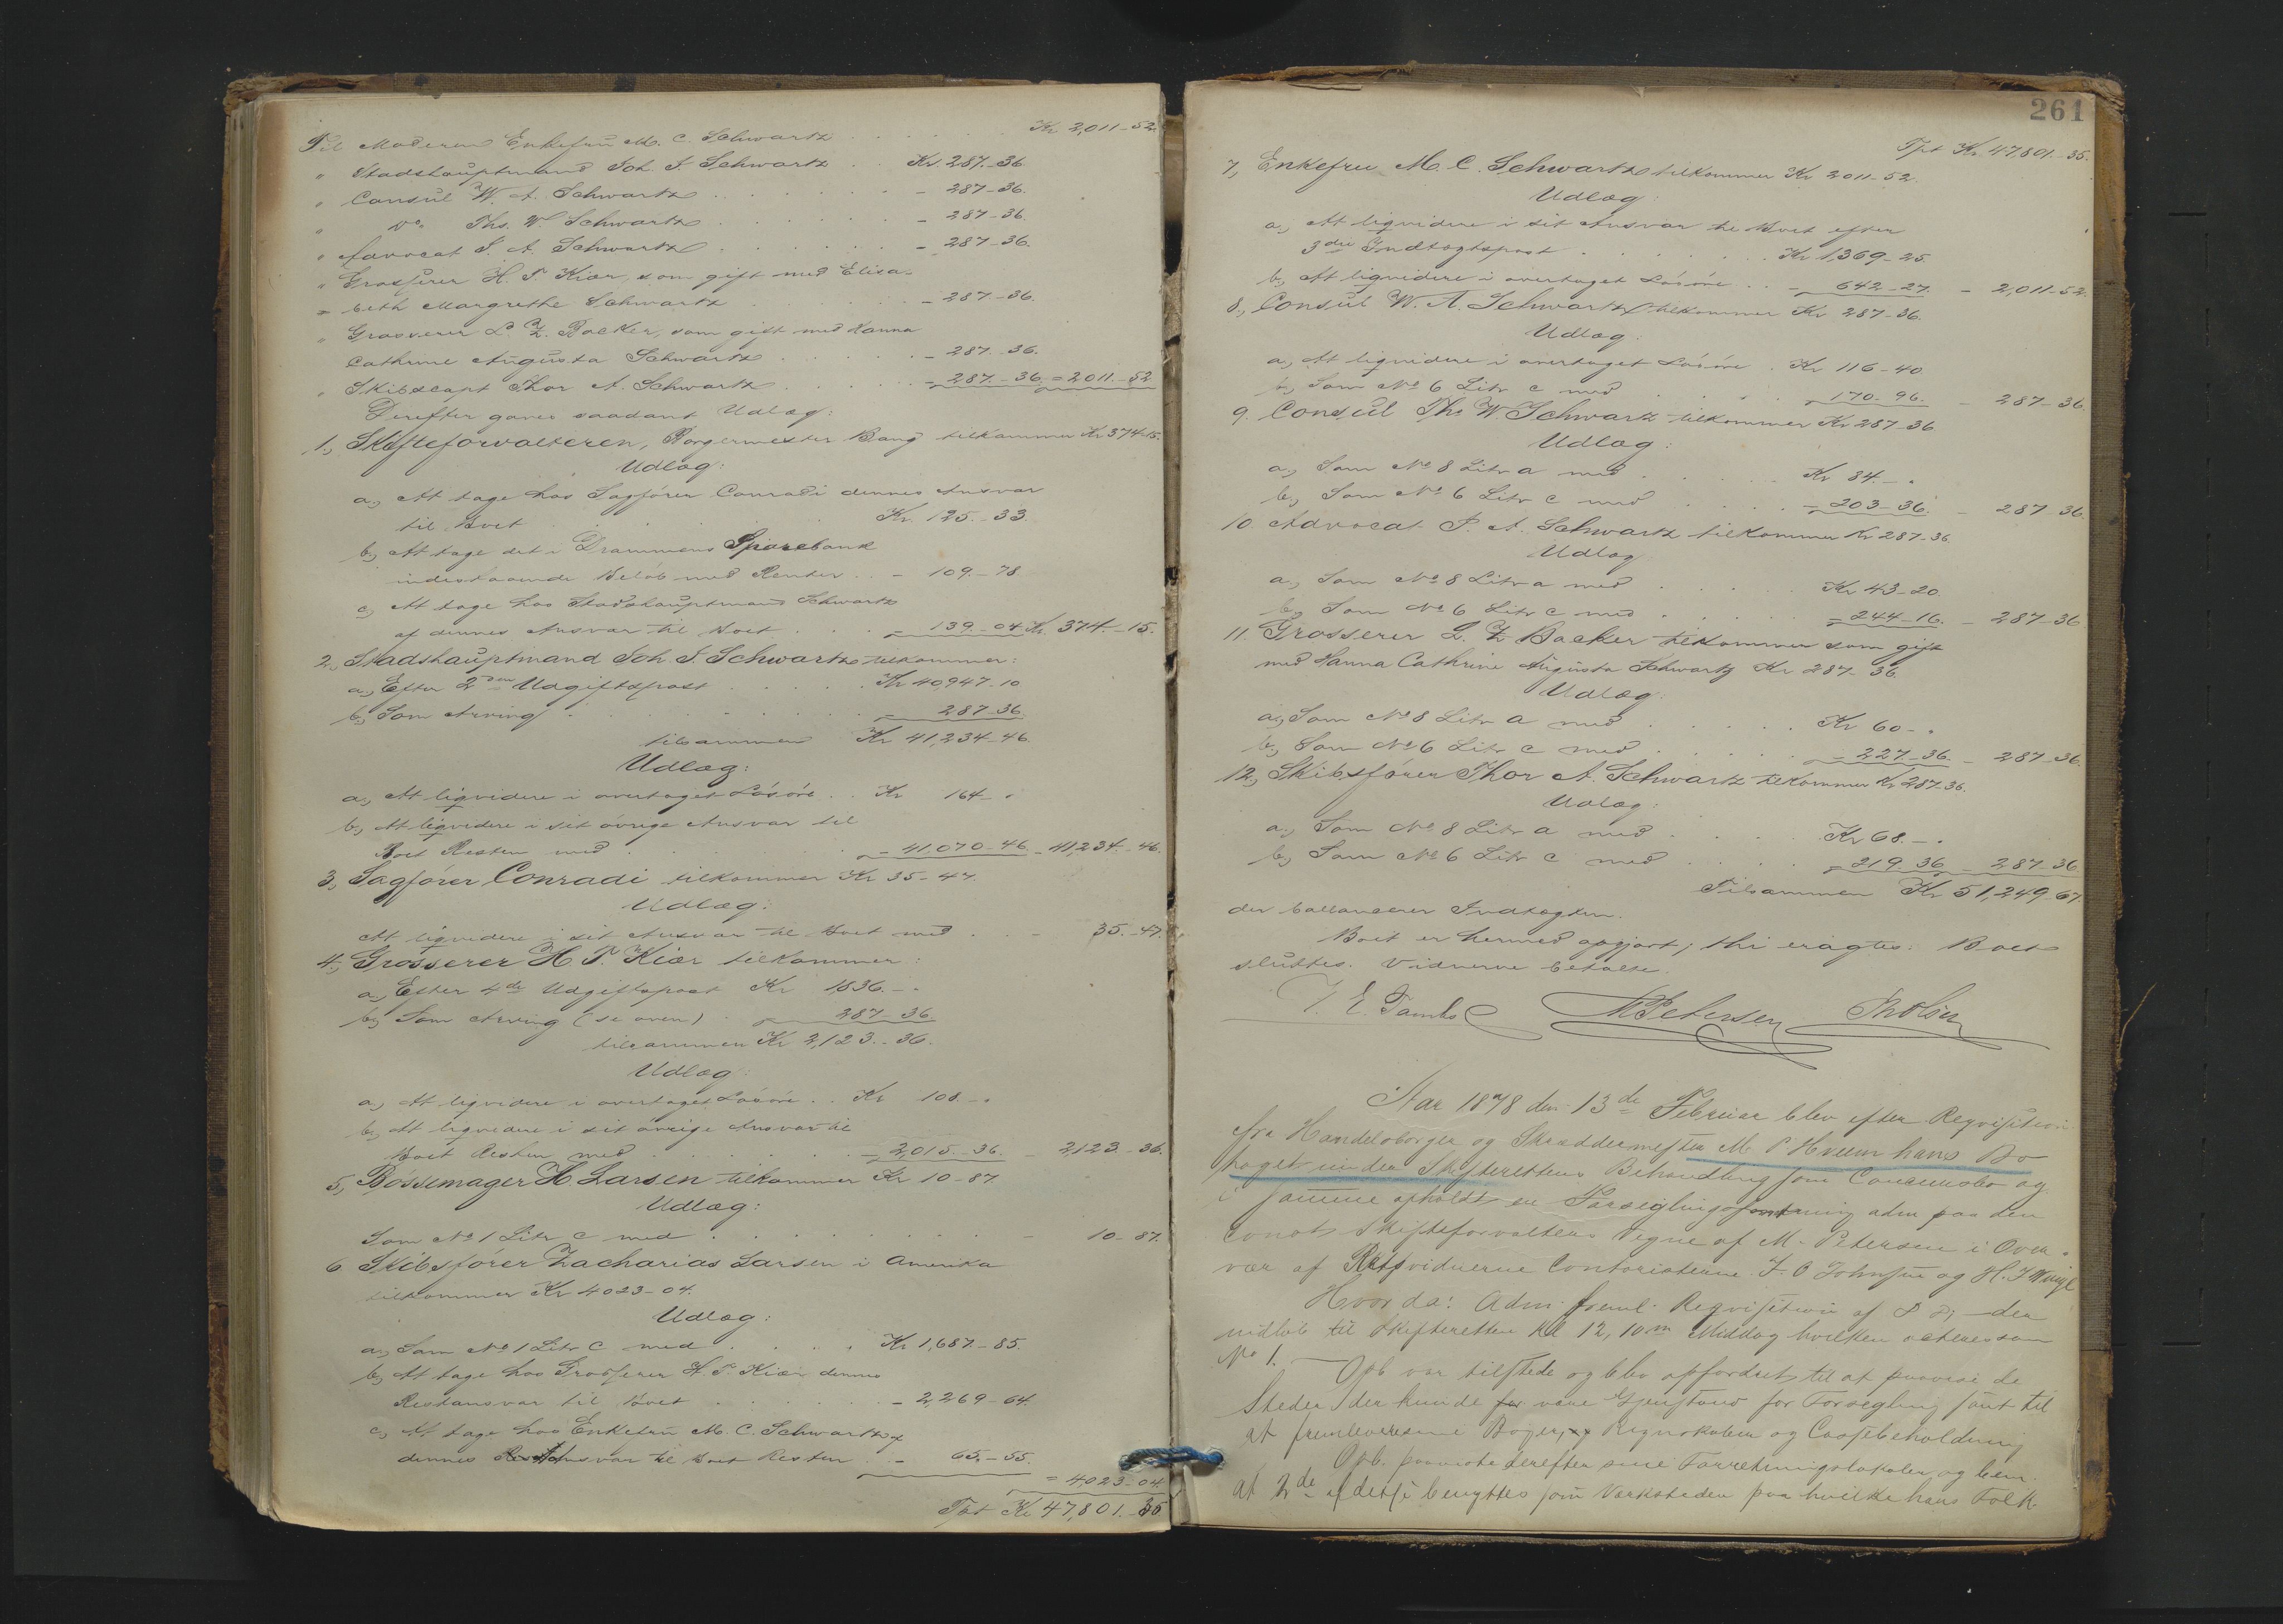 Til Moderen Enkefru M. C. Schwartz . . . . . . Kr 2,011-52.
" Stadshauptmand Joh. F. Schwartz . . Kr 287-36.
" Consul W. A. Schwartz . . . . . . . - 287-36.
" Do. Ths. W. Schwartz . . . . . . - 287-36.
" Advocat P. A. Schwartz . . . . . . - 287-36.
" Grosserer H. P. Kiær, som gift med Elisa-
= beth Margrethe Schwartz . . . . . - 287-36.
" Grosserer L. Z. Backer, som gift med Hanna
Cathrine Augusta Schwartz . . . . . - 287-36.
" Skibscapt Thor A. Schwartz . . . . . - 287-36 = 2011-52
Derefter gøres saadant Udlæg:
1, Skifteforvalteren, Borgermester Bang tilkommer Kr 374-15.
Udlæg:
a, At tage hos Sagfører Conradi dennes Ansvar
til Boet . . . . . Kr. 125-33.
b, At tage det i Drammens Sparebank
indestaaende Beløb med Renter . . - 109-78
c, At tage hos Stadshauptmand Schwartz
af dennes Ansvar til Boet . . . . - 139-04 Kr. 374-15.
2, Stadshauptmand Joh. F. Schwartz tilkommer:
a, Efter 2den Udgiftspost . . . . Kr 40947-10
b, Som Arving . . . . . . . - 287-36
tilsammen Kr 41,234-46.
Udlæg:
a, At liqvidere i overtaget Løsøre . . Kr 164- "
b, At liqvidere i sit øvrige Ansvar til
Boet Resten med . . . . . - 41,070-46 - 41,234-46.
3, Sagfører Conradi tilkommer Kr 35-47.
Udlæg:
At liqvidere i sit Ansvar til Boet med . . - 35-47.
4, Grosserer H. P. Kiær tilkommer:
a, Efter 4de Udgiftspost Kr 1836- "
b, Som Arving (se oven) . - 287-36
tilsammen Kr 2,123-36.
Udlæg:
a, At liqvidere i overtaget Løsøre . . Kr 108- "
b, At liqvidere i sit øvrige Ansvar til
Boet Resten med . . . . . . - 2,015-36. - 2123-36.
5, Bøssemager H. Larsen tilkommer Kr 10-87.
Udlæg:
Som No 1 Litr c med . . . . . . . - 10-87.
6. Skibsfører Zacharias Larsen i Amerika
tilkommer Kr 4023-04.
Udlæg:
a, Som No 1 Litr c med . . . . Kr 1,687-85.
b, At tage hos Grosserer H. P. Kiær dennes
Restansvar til Boet . . . . . - 2,269-64.
c, At tage hos Enkefru M. C. Schwartz af
dennes Ansvar til Boet Resten . . - 65-55.
= 4023-04
Tpt Kr 47,801-35
261
Tpt Kr. 47,801-35.
7, Enkefru M. C. Schwartz tilkommer Kr 2011-52.
Udlæg:
a, At liqvidere i sit Ansvar til Boet efter
3die Indtægtspost . . . . . . Kr 1,369-25.
b, At liqvidere i overtaget Løsøre . . - 642-27. - 2,011-52
8, Consul W. A. Schwartz tilkommer Kr 287-36.
Udlæg:
a, At liqvidere i overtaget Løsøre . Kr 116-40.
b, Som No 6 Litr c med . . . . . - 170-96. - 287-36.
9. Consul Ths W Schwartz tilkommer Kr 287-36
Udlæg:
a, Som No 8 Litr a med . . . . . Kr 84- "
b, Som No 6 Litr c med . . . . . - 203-36. - 287-36.
10. Advocat P. A. Schwartz tilkommer Kr 287-36
Udlæg
a, Som No 8 Litr a med . . . . . Kr 43-20.
b, Som No 6 Litr c med . . . . . = 244-16. - 287-36
11. Grosserer L. Z. Backer tilkommer som gift
med Hanna Cathrine Augusta Schwartz Kr 287-36.
Udlæg:
a, Som No 8 Litr a med . . . . . Kr 60- "
b, Som No 6 Litr c med . . . . . - 227-36. - 287-36.
12, Skibsfører Thor A. Schwartz tilkommer Kr 287-36.
Udlæg:
a, Som No 8 Litr a med . . . . . Kr 68- "
b, Som No 6 Litr c med . . . . . = 219-36 - 287-36
Tilsammen Kr 51,249-67.
der ballancerer Indtægten.
Boet er hermed opgjort; thi eragtes: Boet
sluttes. Vidnerne betalte.
M Petersen
Aar 1878 den 13de Februar blev efter Reqvisition
fra Handelsborger og Skreddermester M P Hveem hans Bo
taget under Skifterettens Behandling som Concursbo og
i samme afholdt en Forseglingsforretning adm paa den
const Skifteforvalters Vegne af M. Petersen i Over-
vær af Retsvidnerne Contoristerne F. O Johnsen og H. J
Hvorda: Adm freml. Reqvisition af D. D; der
indløb til Skifteretten Kl 12, 10m Middag hvilken acteres som
No 1. — Opb var tilstede og blev opfordret til at paavise de
Steder der kunde være Gjenstand for Forsegling samt til
at fremlevere sine Bøger, Regnskaber og Cassebeholdning
Opb. paaviste derefter sine Forretningslokaler og bem.
at 2de af disse benyttes som Værksteder paa hvilke hans Folk